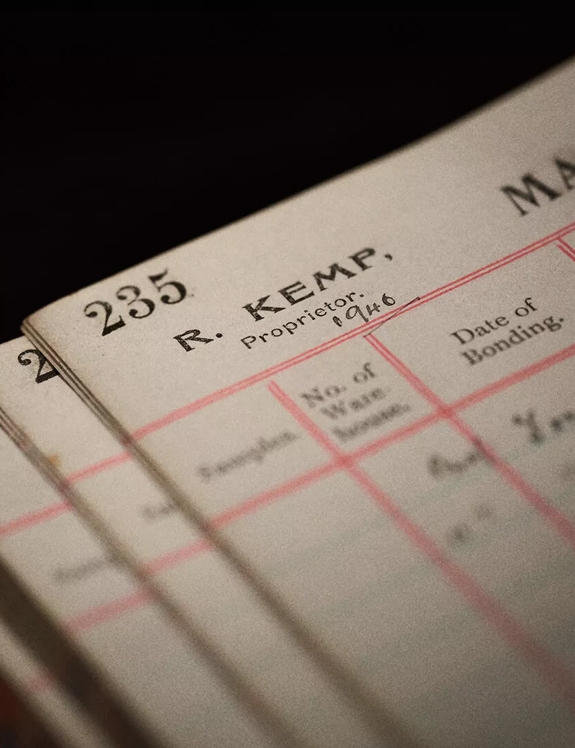 235
MA
R. KEMP,
Proprietor.
1946
No. of
Ware-
house.
Date of
Bonding.
Samples.
2